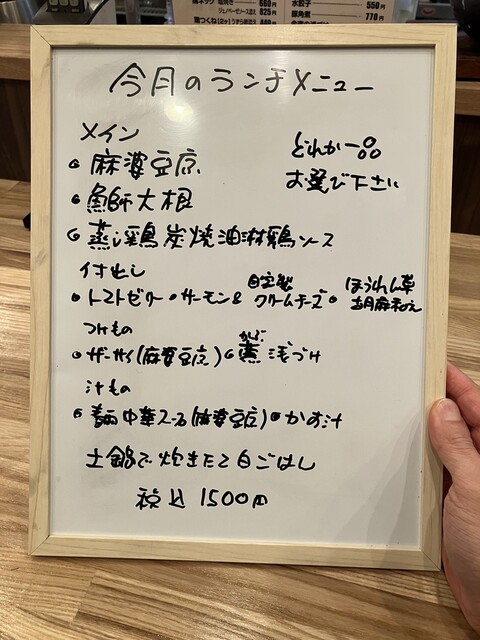 660円
ジェノベーゼソース添え 825円
水餃子 550円
豚角煮 770円
今月のランチメニュー
メイン
どれか一品
・麻婆豆腐
お選び下さい
・魚師大根
・蒸し鶏炭焼油淋鶏ソース
付出し
・トマトゼリー ・サーモン& 自家製クリームチーズ ・ほうれん草胡麻和え
つけもの
・ザーサイ(麻婆豆腐) ・かぶ 浅づけ
汁もの
中華スープ(麻婆豆腐) ・かす汁
土鍋で炊きたて白ごはん
税込 1500円